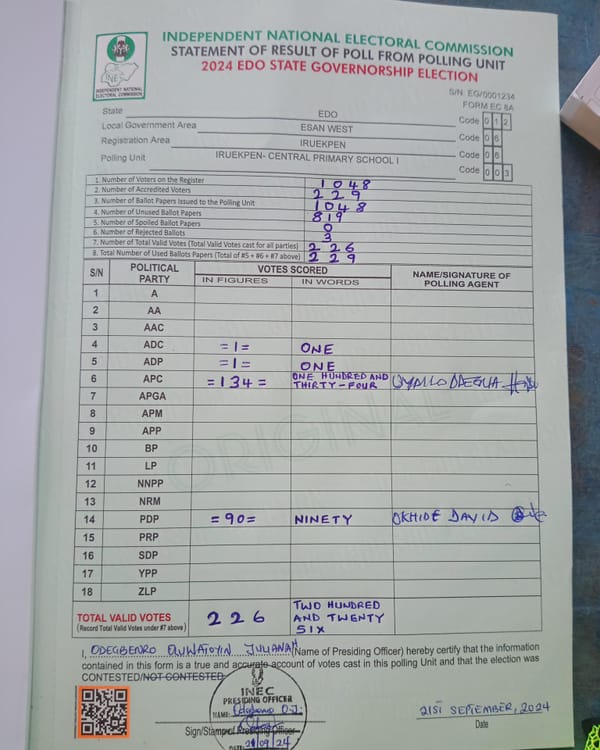 INDEPENDENT NATIONAL ELECTORAL COMMISSION
STATEMENT OF RESULT OF POLL FROM POLLING UNIT
2024 EDO STATE GOVERNORSHIP ELECTION
INEC
INDEPENDENT NATIONAL ELECTORAL COMMISSION
S/N: EG/0001234
FORM EC 8A
State EDO Code 0 1 2
Local Government Area ESAN WEST Code 0 6
Registration Area IRUEKPEN Code 0 6
Polling Unit IRUEKPEN- CENTRAL PRIMARY SCHOOL I Code 0 0 3
1. Number of Voters on the Register 1048
2. Number of Accredited Voters 229
3. Number of Ballot Papers Issued to the Polling Unit 1048
4. Number of Unused Ballot Papers 819
5. Number of Spoiled Ballot Papers 0
6. Number of Rejected Ballots 3
7. Number of Total Valid Votes (Total Valid Votes cast for all parties) 226
8. Total Number of Used Ballots Papers (Total of #5 + #6 + #7 above) 229
S/N POLITICAL PARTY VOTES SCORED NAME/SIGNATURE OF POLLING AGENT
IN FIGURES IN WORDS
1 A
2 AA
3 AAC
4 ADC =1= ONE
5 ADP =1= ONE
6 APC =134= ONE HUNDRED AND THIRTY-FOUR
7 APGA
8 APM
9 APP
10 BP
11 LP
12 NNPP
13 NRM
14 PDP =90= NINETY OKHIDE DAVID
15 PRP
16 SDP
17 YPP
18 ZLP
ORIGINAL
TOTAL VALID VOTES 226 TWO HUNDRED AND TWENTY SIX
(Record Total Valid Votes under #7 above)
I, ODEGBENRO OLUWATOYIN JULIANAH (Name of Presiding Officer) hereby certify that the information
contained in this form is a true and accurate account of votes cast in this polling Unit and that the election was
CONTESTED/NOT CONTESTED.
INEC
PRESIDING OFFICER
NAME: Odegbenro O.J.
Sign/Stamp of Presiding Officer
DATE 21/09/24
21ST SEPTEMBER, 2024
Date